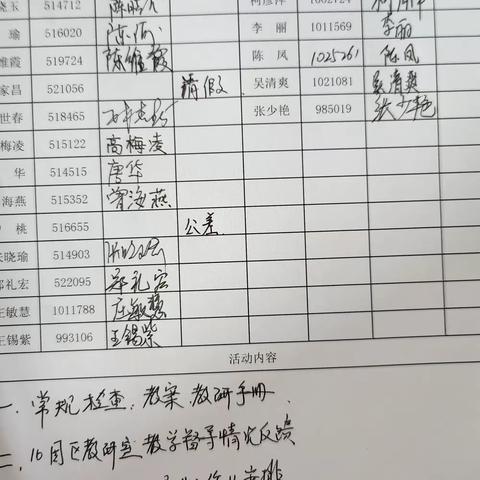 晓玉 514712
瑜 516020 陈瑜 李 丽 1011569 李丽
维霞 519724 陈维霞 陈 凤 1025261 陈凤
家昌 521056 请假 吴清爽 1021081 吴清爽
世春 518465 张少艳 985019 张少艳
梅凌 515122 高梅凌
华 514515 唐华
海燕 515352 曾海燕
桃 516655 公差
晓瑜 514903
郑礼宏 522095 郑礼宏
庄敏慧 1011788 庄敏慧
王锡紫 993106 王锡紫
活动内容
一、常规检查:教案、教研手册.
二、10周区教研室教学督导情况反馈